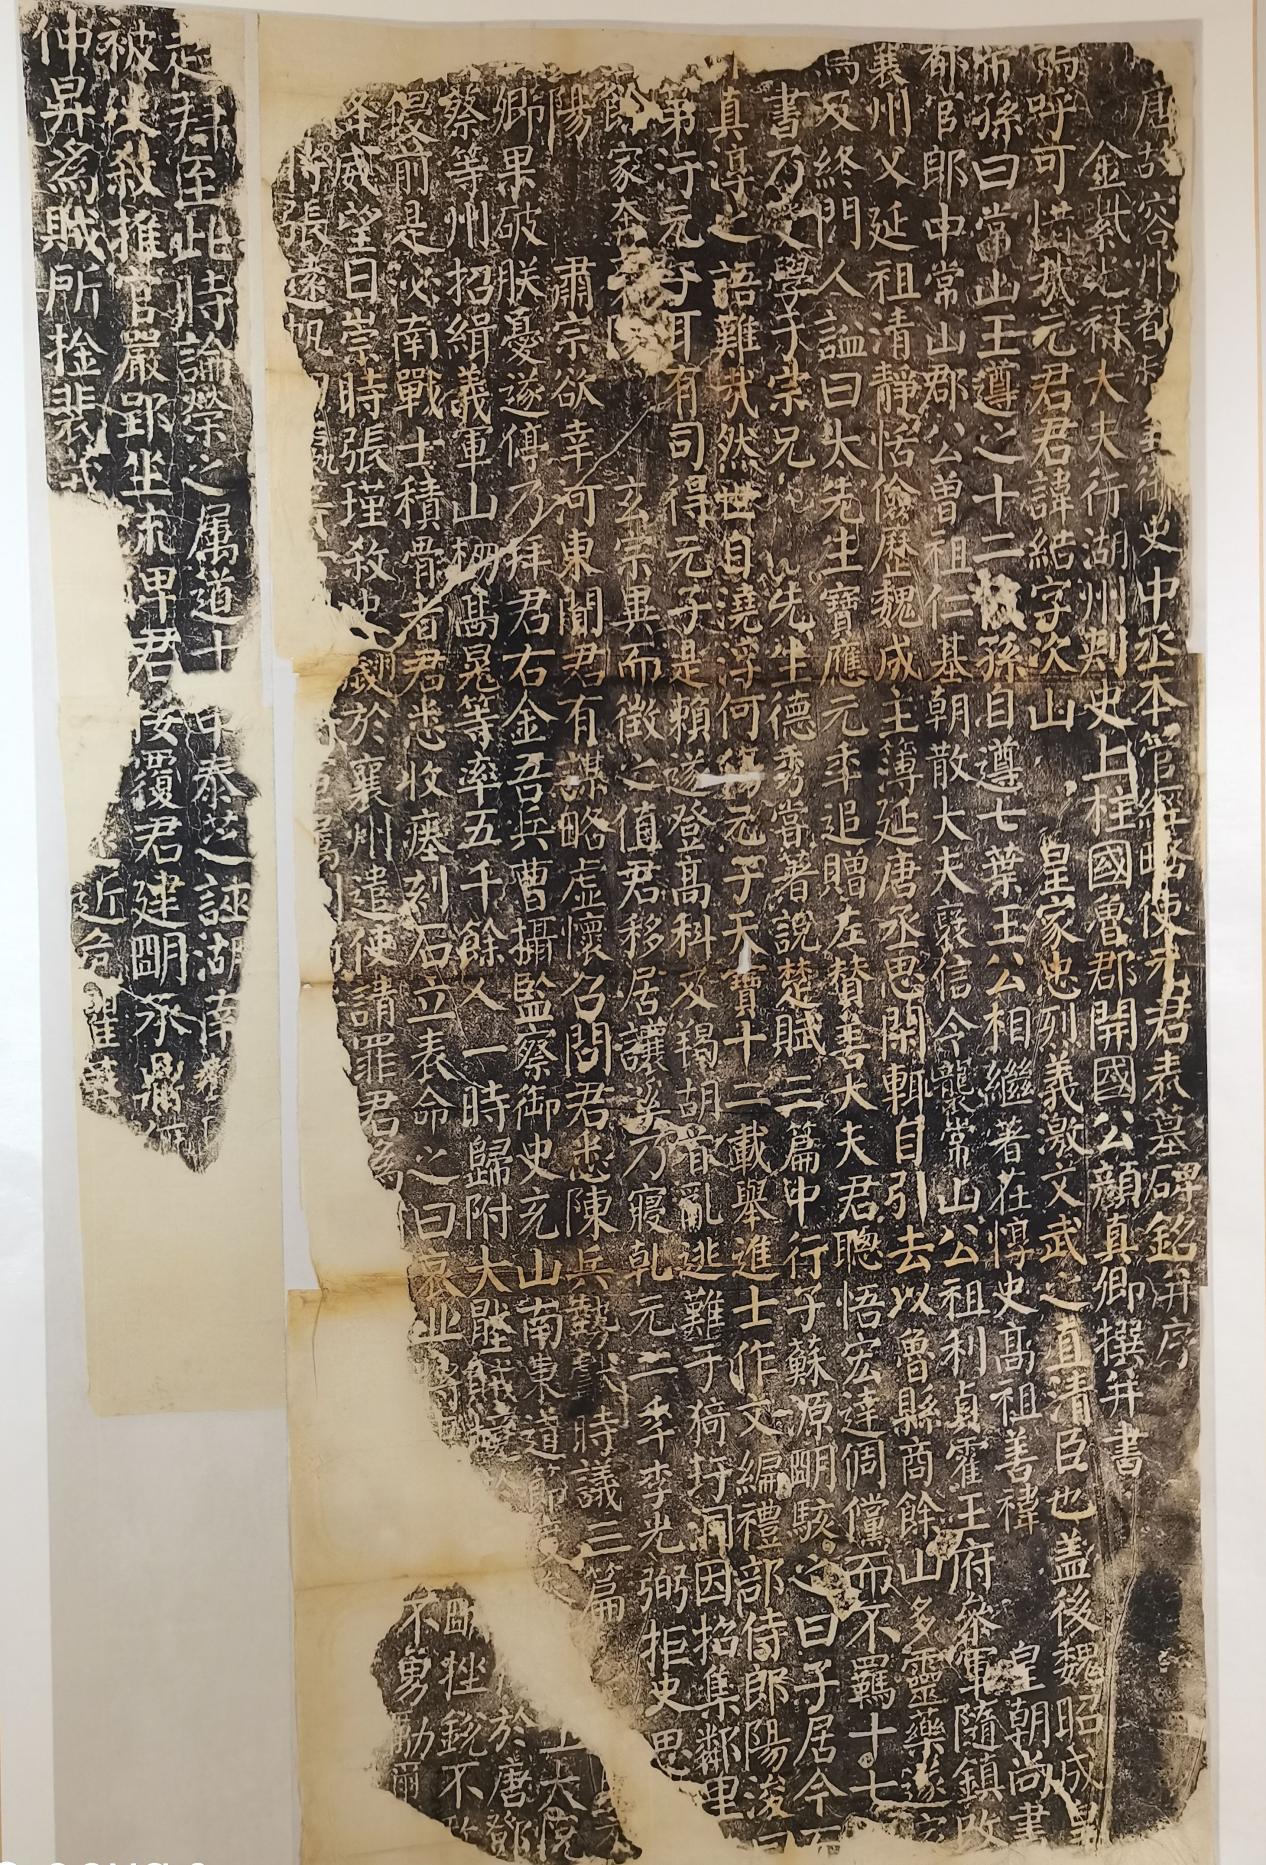 唐故容州都督兼御史中丞本管經略使元君表墓碑銘并序
金紫光祿大夫行湖州刺史上柱國魯郡開國公顏真卿撰并書
嗚呼可惜哉元君君諱結字次山皇家忠烈義激文武之直清臣也蓋後魏昭成皇
帝孫曰常山王遵之十二代孫自遵七葉王公相繼著在惇史高祖善禕皇朝尚書
都官郎中常山郡公曾祖仁基朝散大夫襃信令襲常山公祖利貞霍王府參軍隨鎮改
襄州父延祖清靜恬儉歷魏成主簿延唐丞思閑輒自引去以魯縣商餘山多靈藥遂家
焉及終門人謚曰太先生寶應元年追贈左贊善大夫君聰悟宏達倜儻而不羈十七
書乃受學于宗兄先生德秀嘗著說楚賦三篇中行子蘇源明駭之曰子居今而
真淳之語難哉然世自澆浮何傷元子天寶十二載舉進士作文編禮部侍郎陽浚曰
第汙元子耳有司得元子是賴遂登高科及羯胡首亂逃難于猗玗洞因招集鄰里
餘家奔襄陽玄宗異而徵之值君移居讓溪乃寢乾元二年李光弼拒史思
陽肅宗欲幸河東聞君有謀略虛懷召問君悉陳兵勢獻時議三篇
卿果破朕憂遂停乃拜君右金吾兵曹攝監察御史充山南東道節度 於唐鄧
蔡等州招緝義軍山棚高晃等率五千餘人一時歸附大壓賊境於 挫銳不
侵前是泌南戰士積骨者君悉收瘞刻石立表命之曰哀丘將 不勇勵
降威望日崇時張瑾殺史翽於襄州遣使請罪君為
將張遠帆
走君至此時論榮之屬道士申泰芝誣湖南
被使殺推官嚴郢坐流俾君按覆君建明承鼎
仲昇為賊所擒裴茙 近